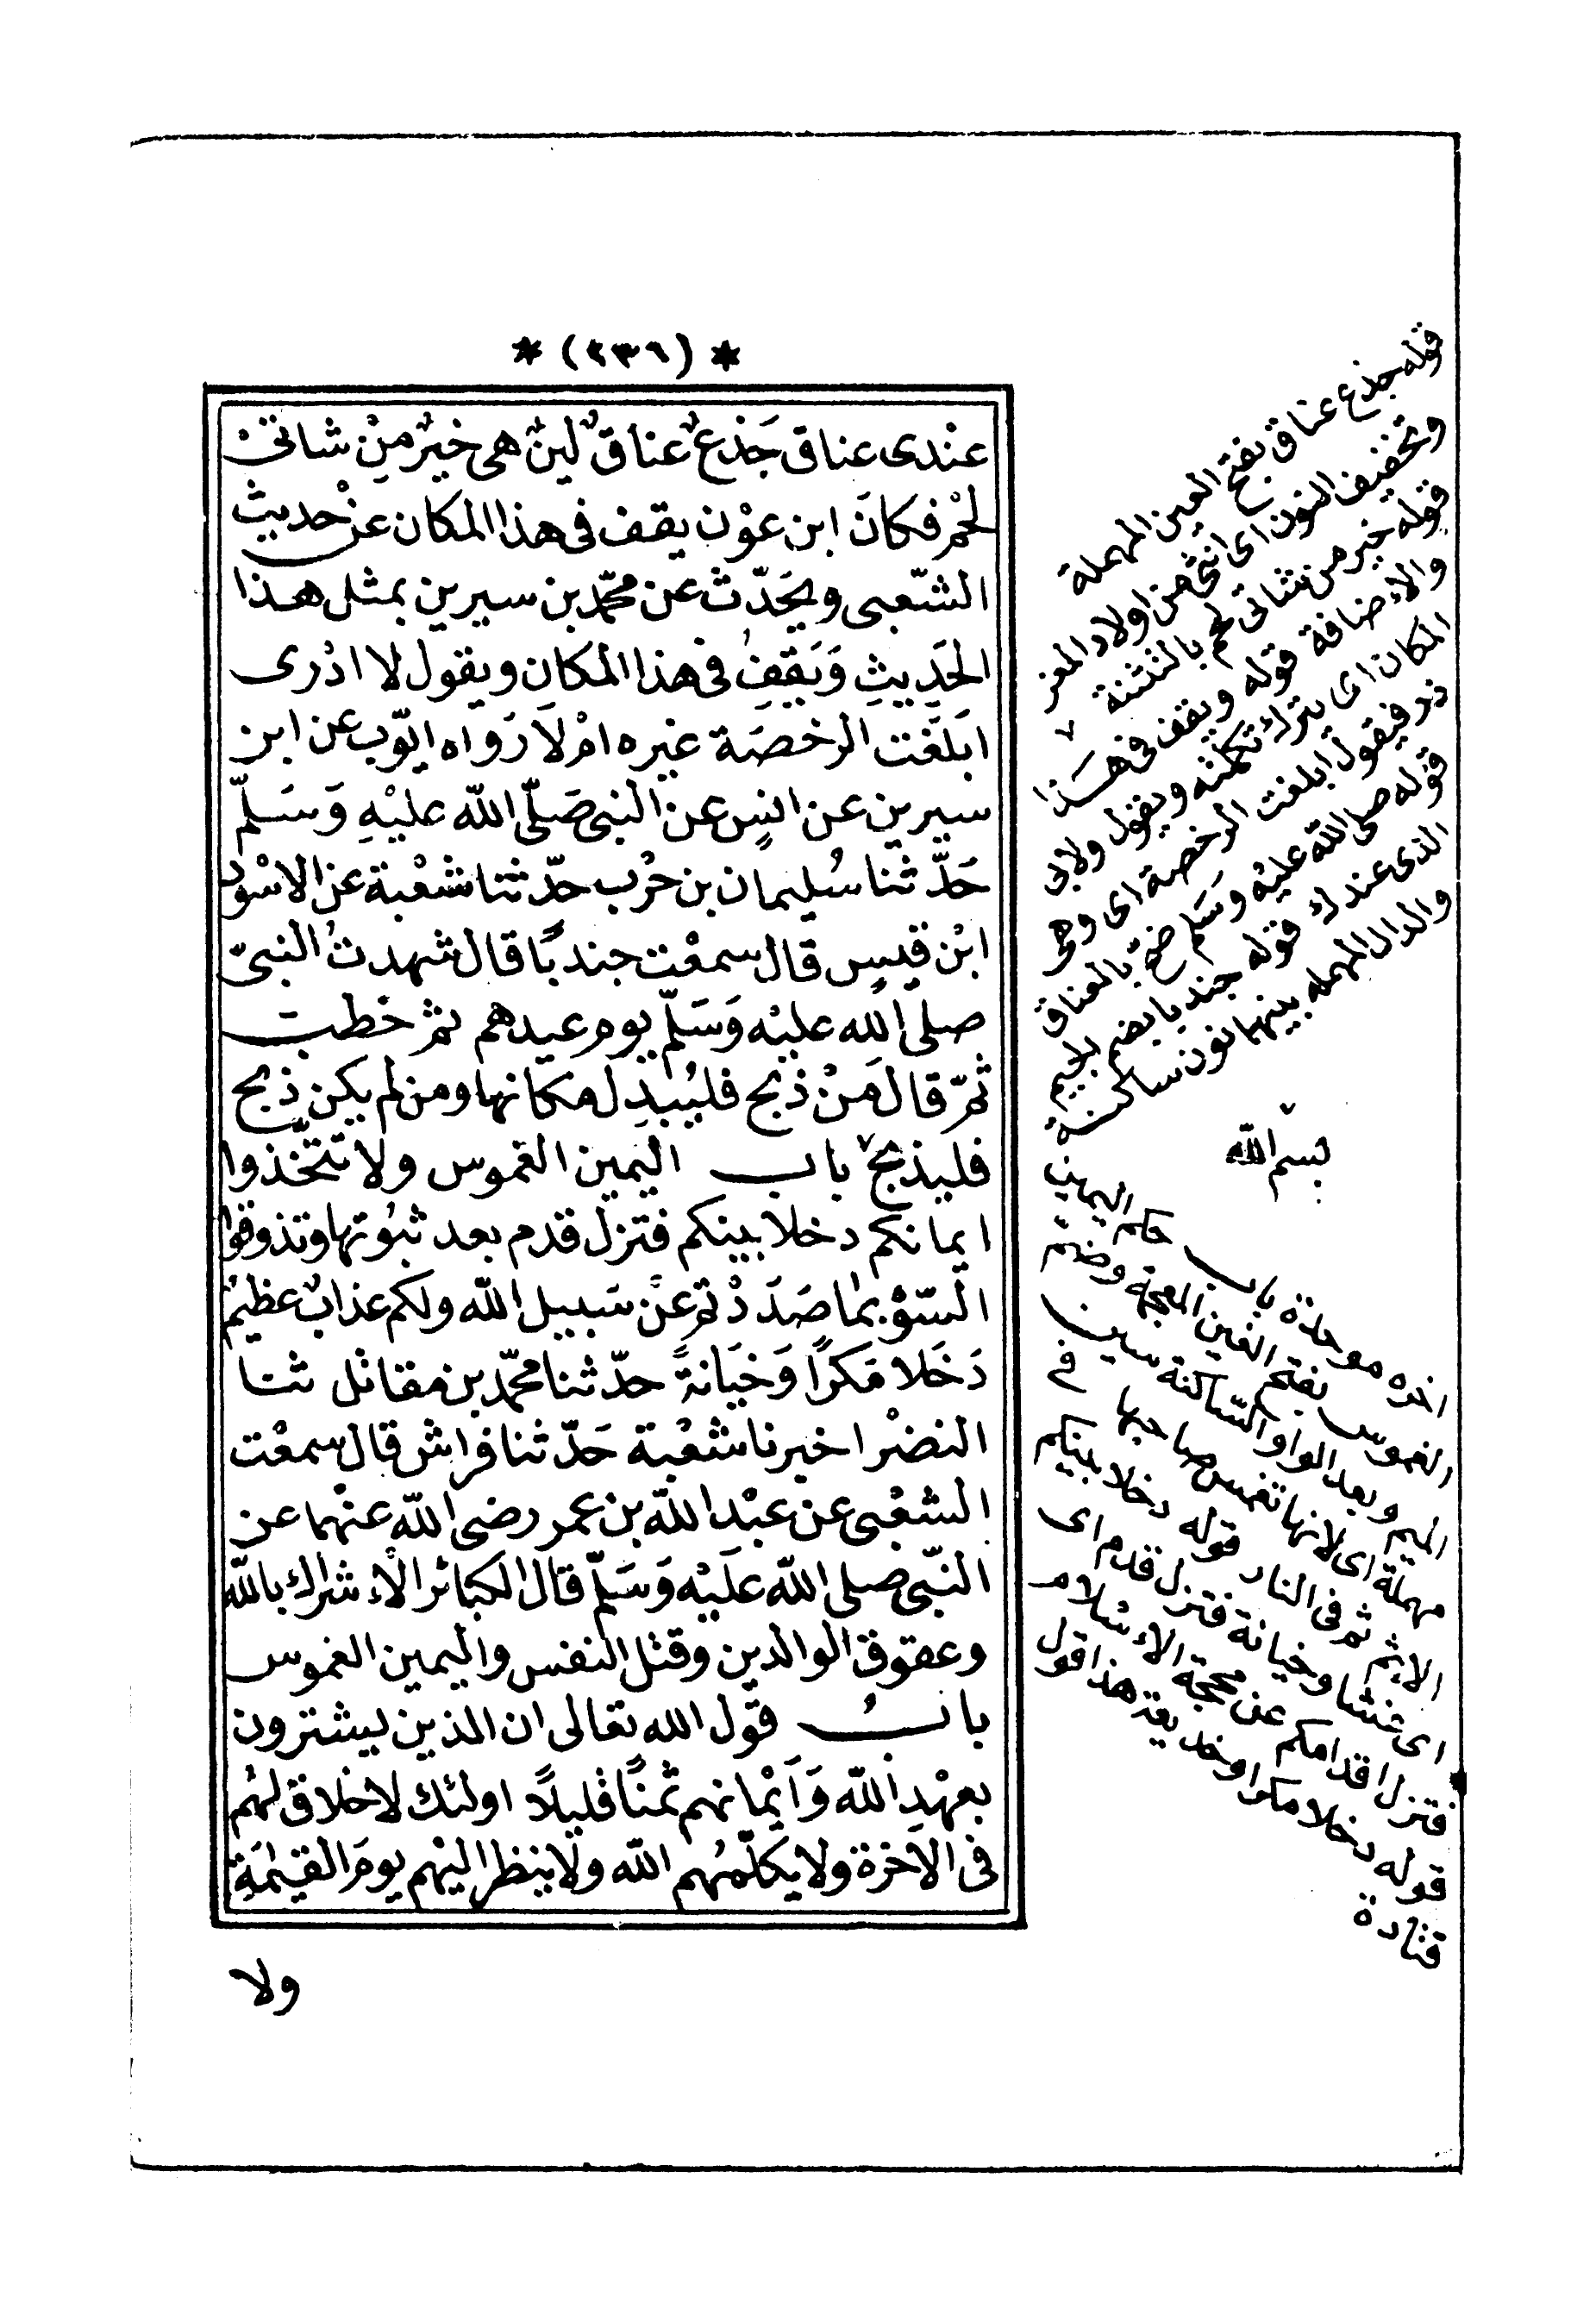 * (٢٣٦) *
عنْدى عناق جَذعٌ عناقُ لبنٍ هى خيرٌ مِنْ شاتىْ
لحْم فكانَ ابن عوْن يقف فى هذا المكان عنْ حديث
الشّعبى ويحَدّث عن محمّد بن سيرين بمثل هذا
الحَدِيثِ وَيَقِفُ فى هذا المكانِ ويقول لا ادْرى
ابَلغَت الرخصَة غيره امْ لَا رَواه ايّوب عن ابن
سيرين عن انسٍ عن النبى صَلّى الله عليْهِ وَسَلّم
حَدّثنا سُليمان بن حرْب حدّثنا شعْبة عن الاسْود
ابْن قيسٍ قال سمعْت جندبًا قال شهدتُ النبىّ
صلى الله عليْه وَسَلّم يوم عيدهم ثم خطب
ثمّ قال مَنْ ذبح فليُبدِل مكانها ومن لم يكن ذبح
فليذبح باب اليمين الغموس ولا تتّخذوا
ايمانكم دخلا بينكم فتزل قدم بعد ثبُوتها وتذوقوا
السّوْ بما صَدَدْتم عنْ سَبيل الله ولكم عذابٌ عظيمٌ
دَخَلا مَكرًا وَخيَانةً حدّثنا محمّد بن مقاتل ثنا
النضْر اخبرنا شعْبة حَدّثنا فراش قال سمعْت
الشعْبى عن عبْدِ الله بن عمر رضى الله عنْهما عن
النّبى صلى الله علَيْه وَسَلّم قال الكبائر الاءشراك بالله
وعقوق الوالدين وقتل النفس واليمين الغموس
بابُ قول الله تعالى ان الذين يشترون
بعهْدِ الله وَاَيْمانهم ثمنًا قليلًا اولئك لا خلاق لهُم
فى الاخرة ولا يكلّمهُم الله ولا ينظر اليْهم يومَ القيٰمَةِ
ولا
قوله جذع عناق بفتح العين المهملة
وتخفيف النون اى انثى من اولاد المعز
قوله خير من شاتى لحم بالتثنية
والاءضافة قوله ويقف فى هَذا
المكان اى يترك تكملته ويقول ولابى
ذر فيقول ابلغت الرخصة اى وهى
قوله صلى الله عليْه وسَلم ضح بالعناق
الذى عندك قوله جندبا بضم الجيم
والدال المهمله بينهما نون ساكنة
بسم الله
اخره موحدة باب حكم اليمين
الغموس بفتح الغين المعجمة وضم
الميم وبعد الواو الساكنة سين
مهملة اى لانها تغمس صاحبها فى
الاءثم ثم فى النار قوله دخلا بينكم
اى غشا وخيانة فتزل قدم اى
فتزل اقدامكم عن محجة الاءسلام
قوله دخلا مكرا وخديعة هذا قول
قتادة